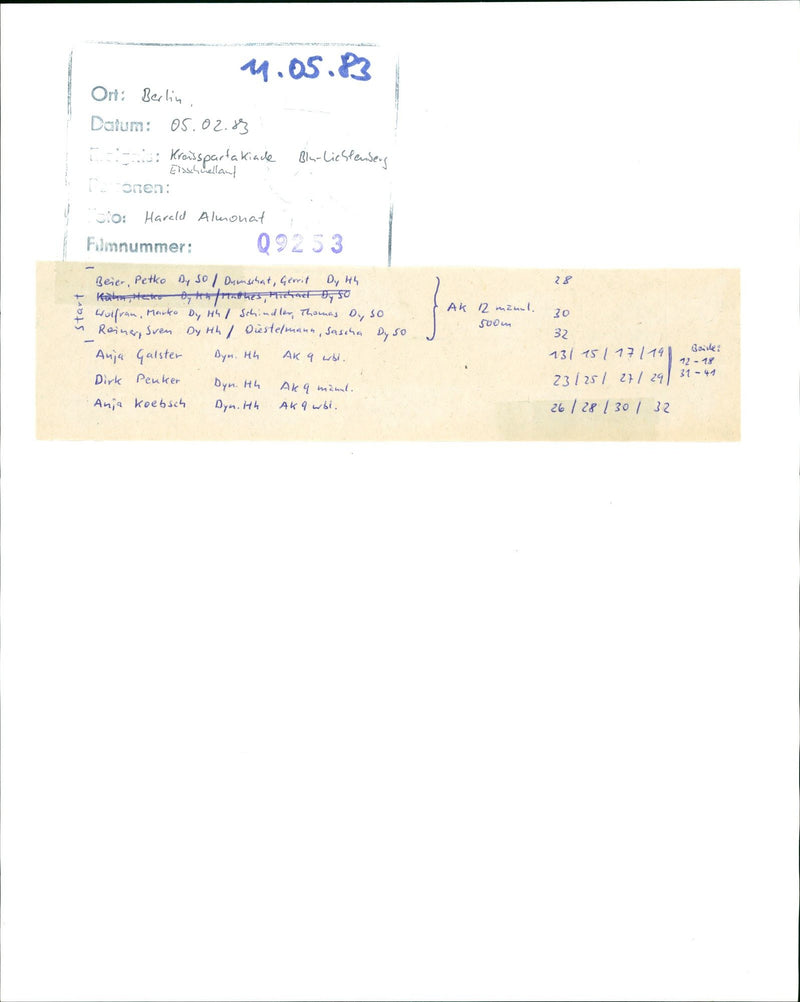 11.05.83
Ort: Berlin,
Datum: 05.02.83
Kreisspartakiade Bln-Lichtenberg
Eisschnellauf
Foto: Harald Almonat
Filmnummer: Q9253
Start
Beier, Petko Dy SO / Dumschat, Gerrit Dy Hh 28
Kühn, Heiko Dy Hh / Mathes, Michael Dy SO
Wolfram, Marko Dy Hh / Schindler, Thomas Dy SO 30
AK 12 männl.
500m
Reiner, Sven Dy Hh / Düstelmann, Sascha Dy SO 32
Anja Galster Dyn. Hh AK 9 wbl. 13 / 15 / 17 / 19
Beide:
12-18
31-41
Dirk Penker Dyn. Hh AK 9 männl. 23 / 25 / 27 / 29
Anja Koebsch Dyn. Hh AK 9 wbl. 26 / 28 / 30 / 32